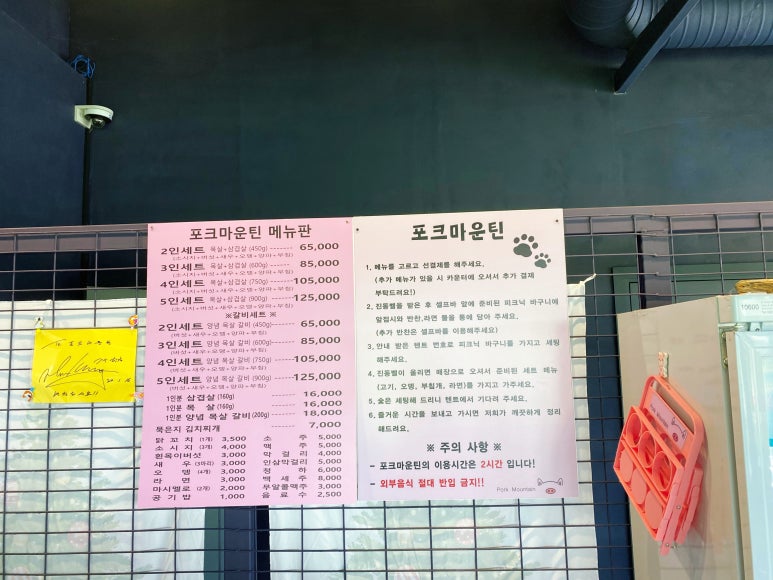 포크마운틴 메뉴판
2인세트 목살+삼겹살 (450g) ------- 65,000
(소시지+버섯+새우+오뎅+양파+부침)
3인세트 목살+삼겹살 (600g) ------- 85,000
(소시지+버섯+새우+오뎅+양파+부침)
4인세트 목살+삼겹살 (750g) ------- 105,000
(소시지+버섯+새우+오뎅+양파+부침)
5인세트 목살+삼겹살 (900g) ------- 125,000
※갈비세트※
2인세트 양념 목살 갈비 (450g) ------- 65,000
(버섯+새우+오뎅+양파+부침)
3인세트 양념 목살 갈비 (600g) ------- 85,000
(버섯+새우+오뎅+양파+부침)
4인세트 양념 목살 갈비 (750g) ------- 105,000
(버섯+새우+오뎅+양파+부침)
5인세트 양념 목살 갈비 (900g) ------- 125,000
(버섯+새우+오뎅+양파+부침)
1인분 삼겹살 (160g) ------- 16,000
1인분 목 살 (160g) ------- 16,000
1인분 양념 목살 갈비 (200g) ------- 18,000
묵은지 김치찌개 ------- 7,000
닭 꼬 치 (1개) 3,500 소 주 5,000
소 시 지 (3개) 4,000 맥 주 5,000
흰목이버섯 3,000 막 걸 리 4,000
새 우 (3마리) 3,000 인삼막걸리 5,000
오 뎅 (4개) 3,000 청 하 6,000
라 면 3,000 백 세 주 8,000
마시멜로 (2개) 2,000 무알콜맥주 3,000
공 기 밥 1,000 음 료 수 2,500
포크마운틴
1, 메뉴를 고르고 선결제를 해주세요.
(추가 메뉴가 있을 시 카운터에 오셔서 추가 결제
부탁드려요!)
2, 진동벨을 받은 후 셀프바 앞에 준비된 피크닉 바구니에
앞접시와 반찬,라면 물을 통에 담아 주세요.
(추가 반찬은 셀프바를 이용해주세요)
3, 안내 받은 텐트 번호로 피크닉 바구니를 가지고 세팅
해주세요.
4, 진동벨이 울리면 매장으로 오셔서 준비된 세트 메뉴
(고기, 오뎅, 부침개, 라면)를 가지고 가주세요.
5, 숯은 세팅해 드리니 텐트에서 기다려 주세요.
6, 즐거운 시간을 보내고 가시면 저희가 깨끗하게 정리
해드려요.
※ 주의 사항 ※
- 포크마운틴의 이용시간은 2시간 입니다!
- 외부음식 절대 반입 금지!!
Pork Mountain
Pork Mountain
10600